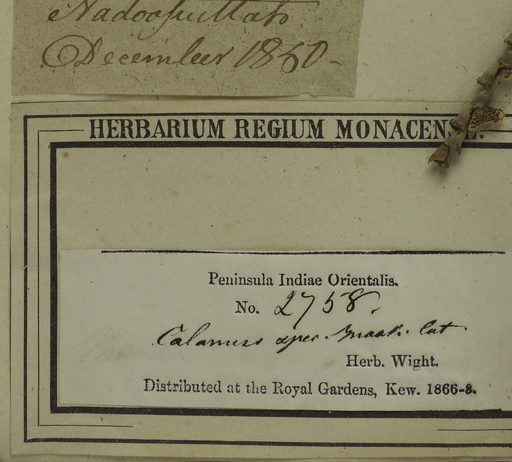 December 1850
HERBARIUM REGIUM MONACENS
Peninsula Indiae Orientalis.
No. 2758.
Calamus
Herb. Wight.
Distributed at the Royal Gardens, Kew. 1866-8.